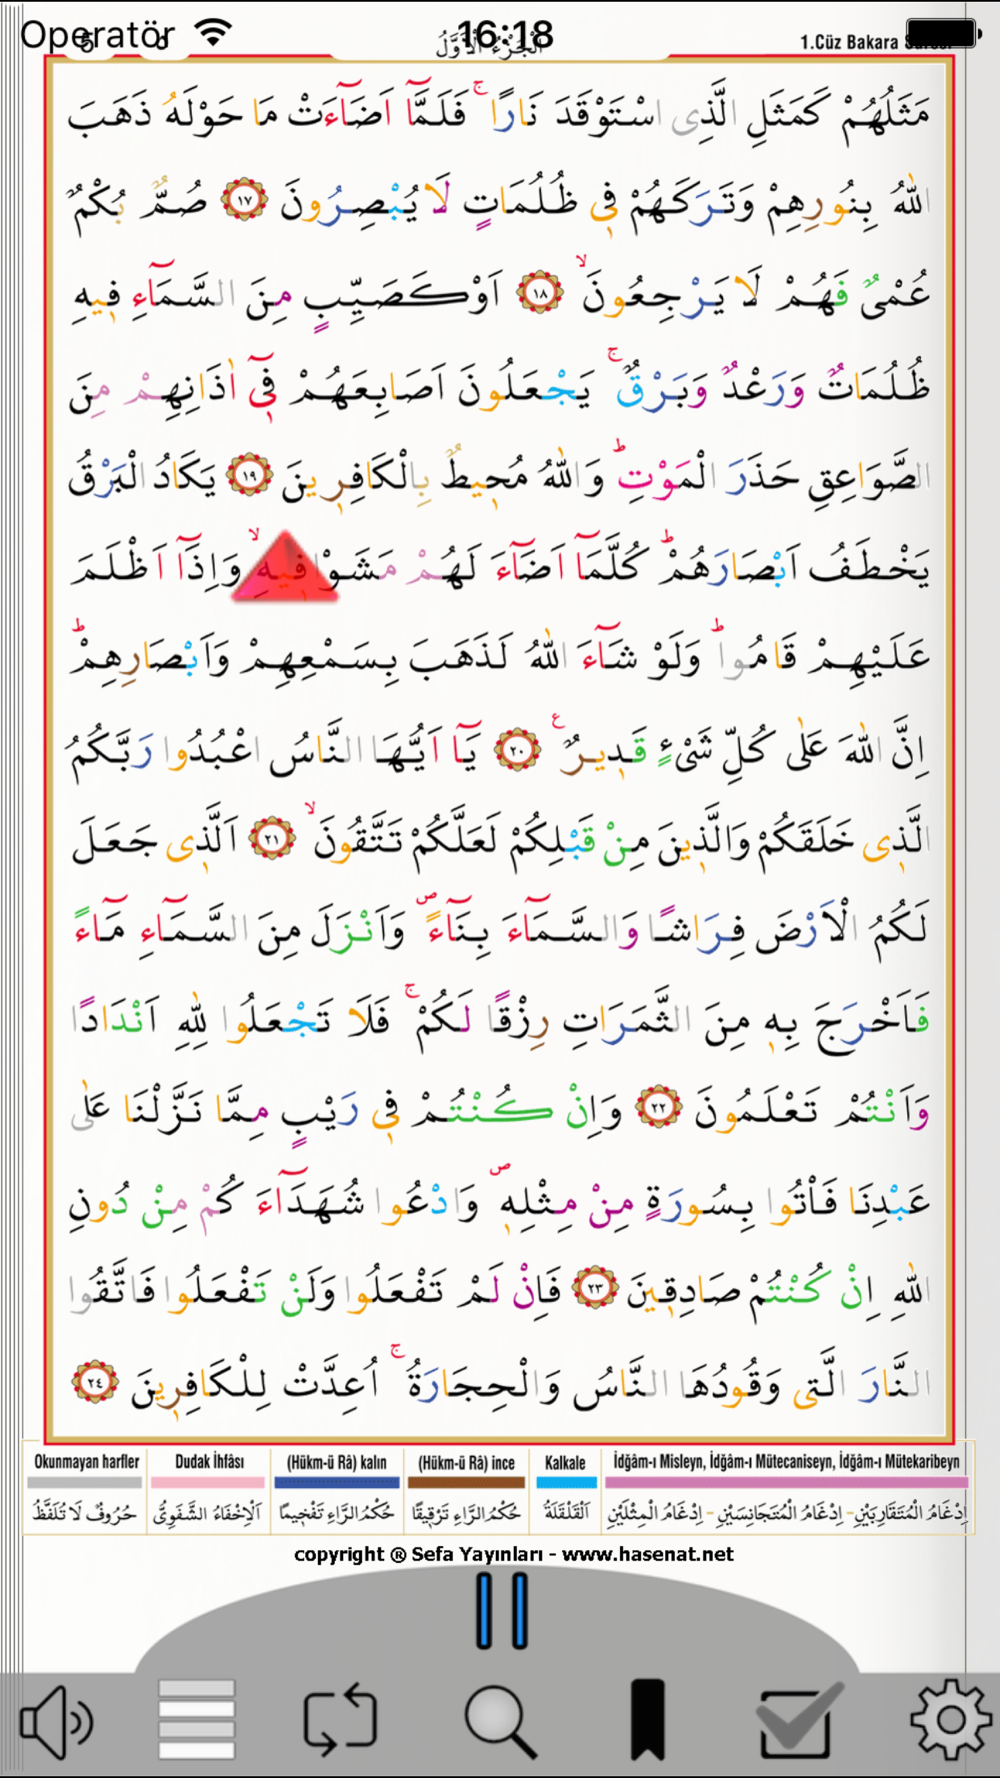 Operatör 16:18
5 اَلْجُزْءُ الْاَوَّلُ 1.Cüz Bakara
مَثَلُهُمْ كَمَثَلِ الَّذِى اسْتَوْقَدَ نَارًاۚ فَلَمَّٓا اَضَٓاءَتْ مَا حَوْلَهُ ذَهَبَ
اللّٰهُ بِنُورِهِمْ وَتَرَكَهُمْ ف۪ي ظُلُمَاتٍ لَا يُبْصِرُونَ ﴿١٧﴾ صُمٌّ بُكْمٌ
عُمْىٌ فَهُمْ لَا يَرْجِعُونَۙ ﴿١٨﴾ اَوْ كَصَيِّبٍ مِنَ السَّمَٓاءِ ف۪يهِ
ظُلُمَاتٌ وَرَعْدٌ وَبَرْقٌۚ يَجْعَلُونَ اَصَابِعَهُمْ ف۪ٓي اٰذَانِهِمْ مِنَ
الصَّوَاعِقِ حَذَرَ الْمَوْتِۜ وَاللّٰهُ مُح۪يطٌ بِالْكَافِر۪ينَ ﴿١٩﴾ يَكَادُ الْبَرْقُ
يَخْطَفُ اَبْصَارَهُمْۜ كُلَّمَٓا اَضَٓاءَ لَهُمْ مَشَوْا ف۪يهِۙ وَاِذَٓا اَظْلَمَ
عَلَيْهِمْ قَامُواۜ وَلَوْ شَٓاءَ اللّٰهُ لَذَهَبَ بِسَمْعِهِمْ وَاَبْصَارِهِمْۜ
اِنَّ اللّٰهَ عَلٰى كُلِّ شَىْءٍ قَد۪يرٌ۟ ﴿٢٠﴾ يَٓا اَيُّهَا النَّاسُ اعْبُدُوا رَبَّكُمُ
الَّذ۪ى خَلَقَكُمْ وَالَّذ۪ينَ مِنْ قَبْلِكُمْ لَعَلَّكُمْ تَتَّقُونَۙ ﴿٢١﴾ اَلَّذ۪ى جَعَلَ
لَكُمُ الْاَرْضَ فِرَاشًا وَالسَّمَٓاءَ بِنَٓاءًۖ وَاَنْزَلَ مِنَ السَّمَٓاءِ مَٓاءً
فَاَخْرَجَ بِه۪ مِنَ الثَّمَرَاتِ رِزْقًا لَكُمْۚ فَلَا تَجْعَلُوا لِلّٰهِ اَنْدَادًا
وَاَنْتُمْ تَعْلَمُونَ ﴿٢٢﴾ وَاِنْ كُنْتُمْ ف۪ي رَيْبٍ مِمَّا نَزَّلْنَا عَلٰى
عَبْدِنَا فَأْتُوا بِسُورَةٍ مِنْ مِثْلِه۪ۖ وَادْعُوا شُهَدَٓاءَ كُمْ مِنْ دُونِ
اللّٰهِ اِنْ كُنْتُمْ صَادِق۪ينَ ﴿٢٣﴾ فَاِنْ لَمْ تَفْعَلُوا وَلَنْ تَفْعَلُوا فَاتَّقُوا
النَّارَ الَّت۪ى وَقُودُهَا النَّاسُ وَالْحِجَارَةُۚ اُعِدَّتْ لِلْكَافِر۪ينَ ﴿٢٤﴾
Okunmayan harfler Dudak İhfâsı (Hükm-ü Râ) kalın (Hükm-ü Râ) ince Kalkale İdğâm-ı Misleyn, İdğâm-ı Mütecaniseyn, İdğâm-ı Mütekaribeyn
حُرُوفٌ لَا تُلَفَّظُ اَلْاِخْفَاءُ الشَّفَوِىُّ حُكْمُ الرَّاءِ تَفْخِيمًا حُكْمُ الرَّاءِ تَرْقِيقًا اَلْقَلْقَلَةُ اِدْغَامُ الْمُتَقَارِبَيْنِ - اِدْغَامُ الْمُتَجَانِسَيْنِ - اِدْغَامُ الْمِثْلَيْنِ
copyright ® Sefa Yayınları - www.hasenat.net